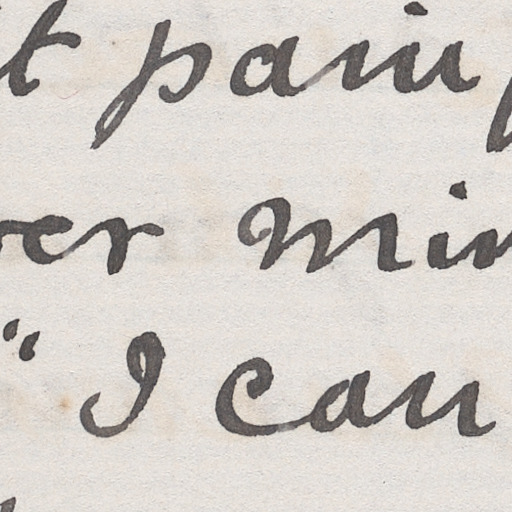 t pain
er min
" I can